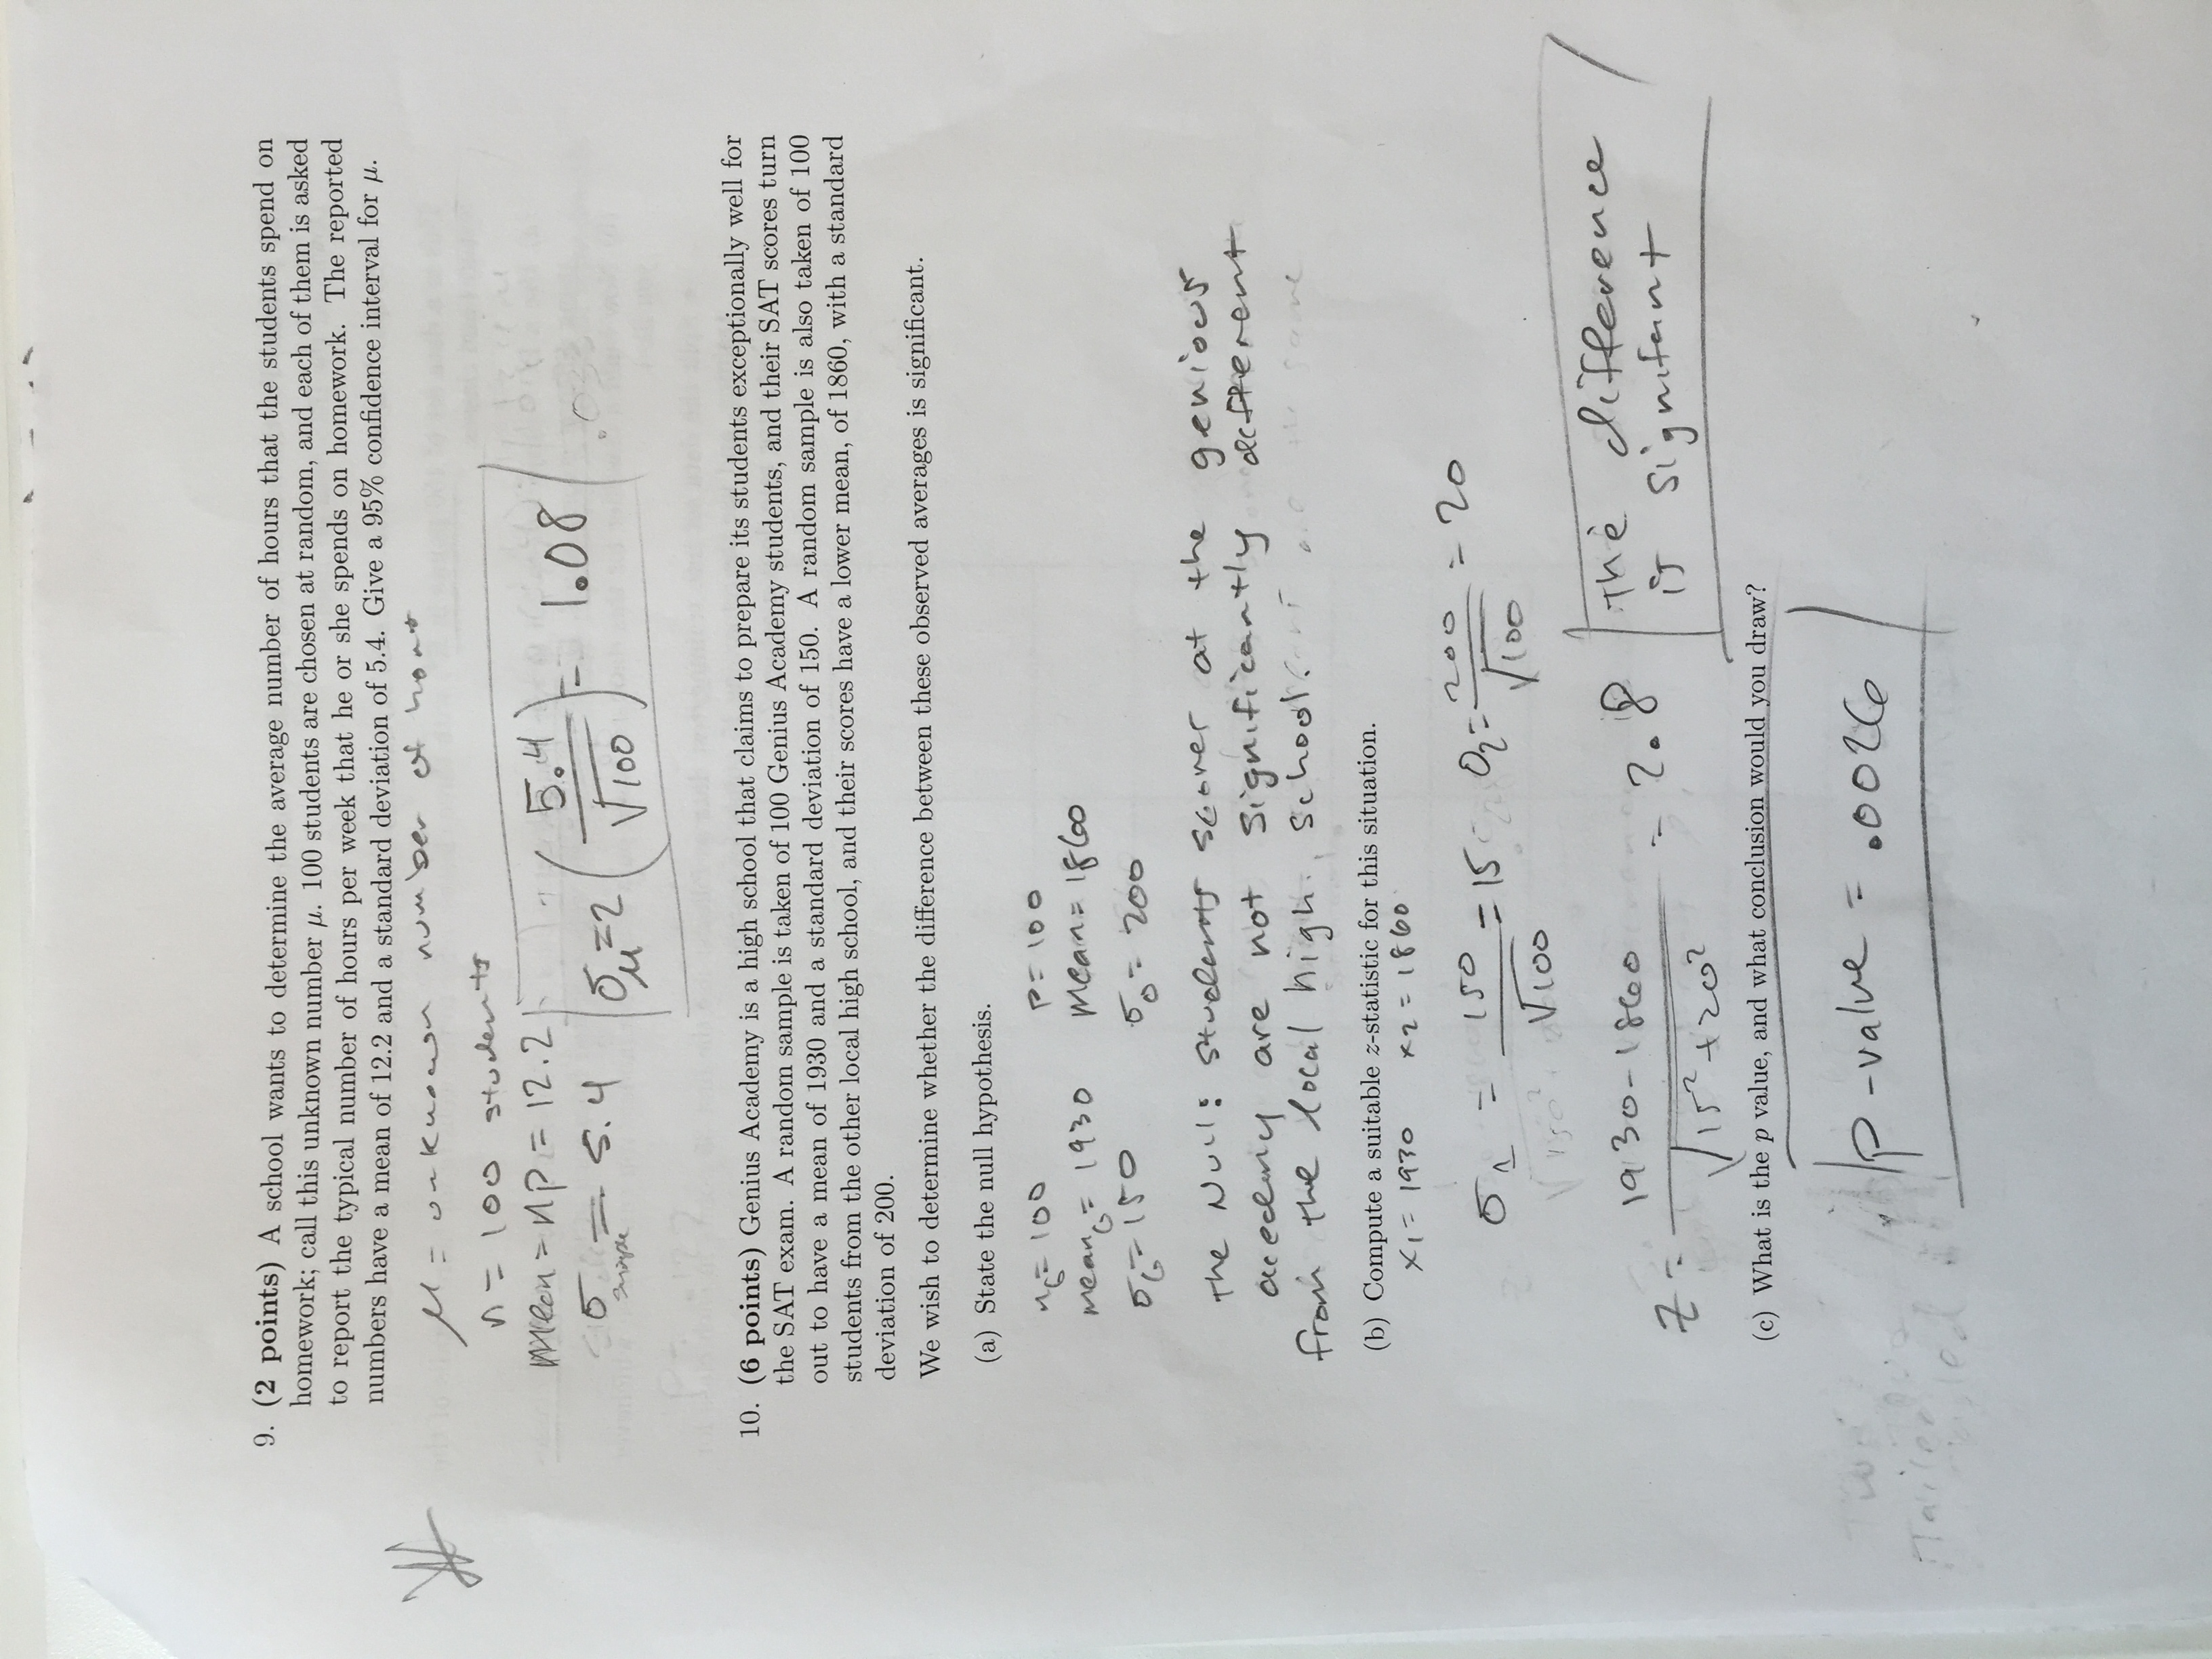 9. (2 points) A school wants to determine the average number of hours that the students spend on
homework; call this unknown number μ. 100 students are chosen at random, and each of them is asked
to report the typical number of hours per week that he or she spends on homework. The reported
numbers have a mean of 12.2 and a standard deviation of 5.4. Give a 95% confidence interval for μ.
μ = unknown number of
n = 100 students
mean = np = 12.2
σ sample = 5.4
σμ = 2 (5.4 / √100) = 1.08
10. (6 points) Genius Academy is a high school that claims to prepare its students exceptionally well for
the SAT exam. A random sample is taken of 100 Genius Academy students, and their SAT scores turn
out to have a mean of 1930 and a standard deviation of 150. A random sample is also taken of 100
students from the other local high school, and their scores have a lower mean, of 1860, with a standard
deviation of 200.
We wish to determine whether the difference between these observed averages is significant.
(a) State the null hypothesis.
nG = 100 P = 100
meanG = 1930 mean = 1860
σG = 150 σo = 200
The Null: students scores at the genious
acedmy are not significantly different
from the local high school.
(b) Compute a suitable z-statistic for this situation.
x1 = 1930 x2 = 1860
σ1 = 150 / √100 = 15 σ2 = 200 / √100 = 20
z = 1930-1860 / √15²+20² = 2.8
The difference
is
(c) What is the p value, and what conclusion would you draw?
p-value = .0026